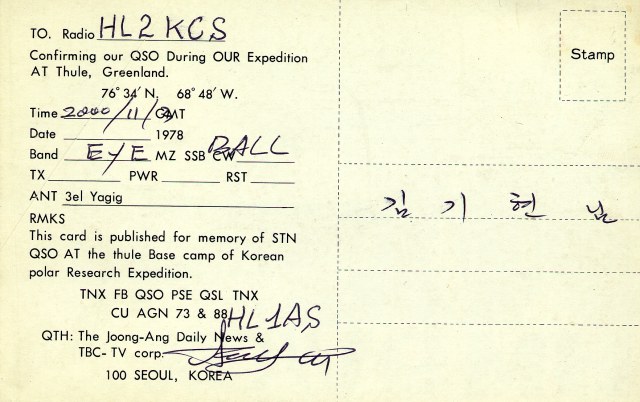 TO. Radio HL2KCS
Confirming our QSO During OUR Expedition
AT Thule, Greenland.
76° 34′ N. 68° 48′ W.
Time 2000/11/3 GMT
Date 1978
Band EYE MZ SSB CW BALL
TX PWR RST
ANT 3el Yagig
RMKS
This card is published for memory of STN
QSO AT the thule Base camp of Korean
polar Research Expedition.
TNX FB QSO PSE QSL TNX
CU AGN 73 & 88 HL1AS
QTH: The Joong-Ang Daily News &
TBC- TV corp.
100 SEOUL, KOREA
Stamp
김 기 현 님